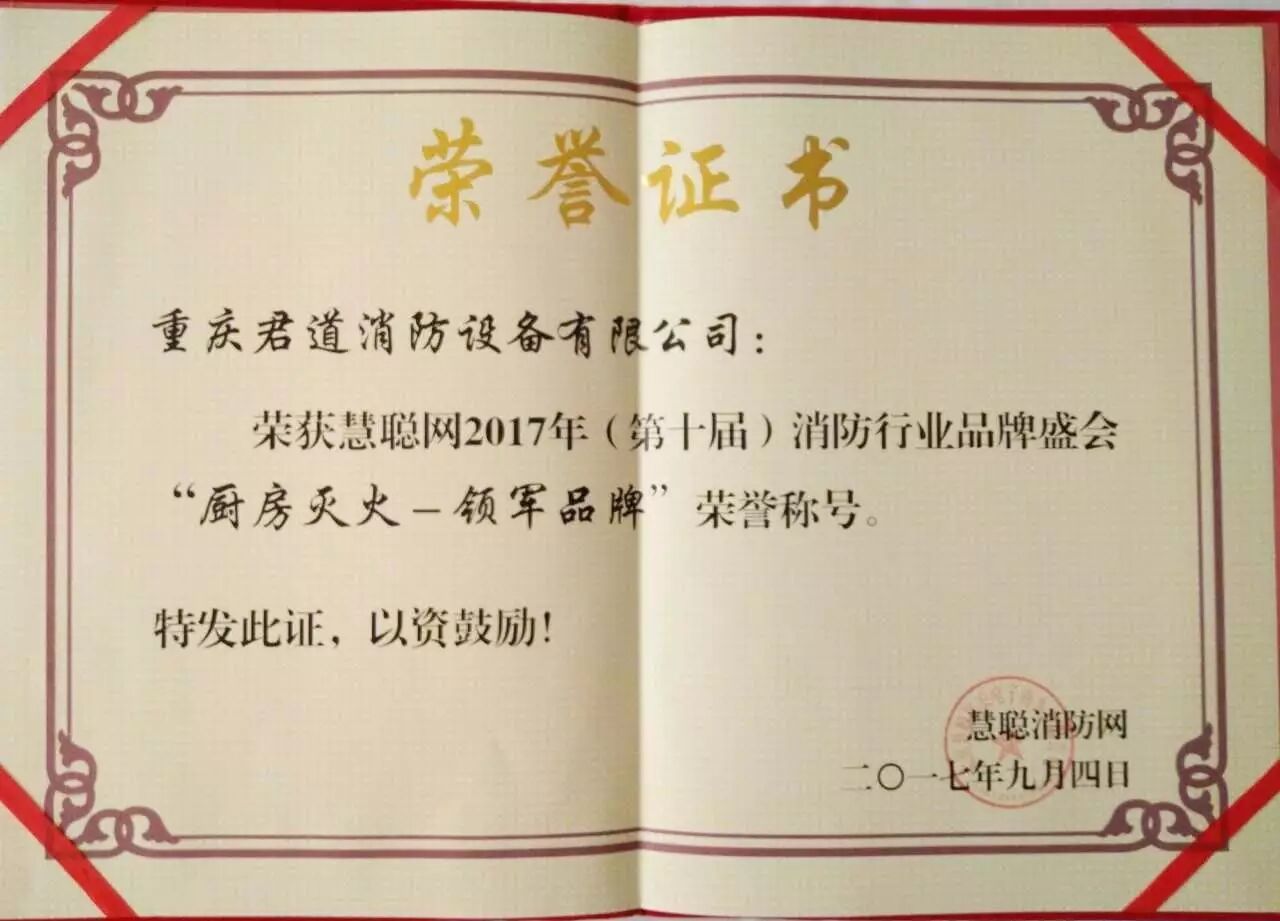 荣誉证书
重庆君道消防设备有限公司：
荣获慧聪网2017年（第十届）消防行业品牌盛会
“厨房灭火－领军品牌”荣誉称号。
特发此证，以资鼓励！
慧聪消防网
二〇一七年九月四日